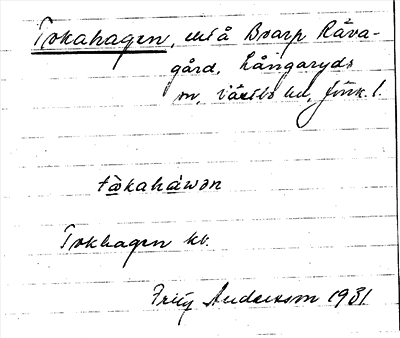 Tokahagen, utå Boarp Råva-
gård, Långaryds
sn, Västbo hd, Jönk. l.
tòkahàwən
Tokhagen kt.
Fritz Andersson 1931